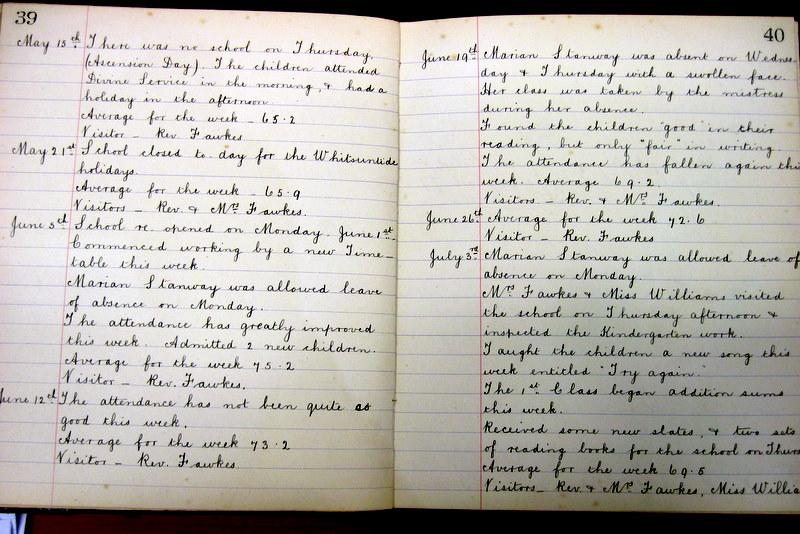 39
May 15th. There was no school on Thursday,
(Ascension Day). The children attended
Divine Service in the morning, & had a
holiday in the afternoon
Average for the week - 65.2
Visitor - Rev Fawkes
May 21st School closed to-day for the Whitsuntide
holidays.
Average for the week - 65.9
Visitors - Rev. & Mrs Fawkes.
June 5th School re-opened on Monday. June 1st.
Commenced working by a new Time-
table this week.
Marian Stanway was allowed leave
of absence on Monday.
The attendance has greatly improved
this week. Admitted 2 new children.
Average for the week 75.2
Visitor - Rev. Fawkes.
June 12th The attendance has not been quite as
good this week.
Average for the week 73.2
Visitor - Rev. Fawkes
40
June 19th Marian Stanway was absent on Wednes-
day & Thursday with a swollen face.
Her class was taken by the mistress
during her absence.
Found the children "good" in their
reading, but only "fair" in writing
The attendance has fallen again this
week. Average 69.2.
Visitors - Rev. & Mrs Fawkes.
June 26th Average for the week 72.6
Visitor - Rev. Fawkes
July 3rd Marian Stanway was allowed leave of
absence on Monday.
Mrs Fawkes & Miss Williams visited
the school on Thursday afternoon &
inspected the Kindergarten work.
Taught the children a new song this
week entitled "Try again."
The 1st Class began addition sums
this week.
Received some new slates, & two sets
of reading books for the school on Thurs
Average for the week 69.5
Visitors - Rev. & Mrs Fawkes, Miss Willia